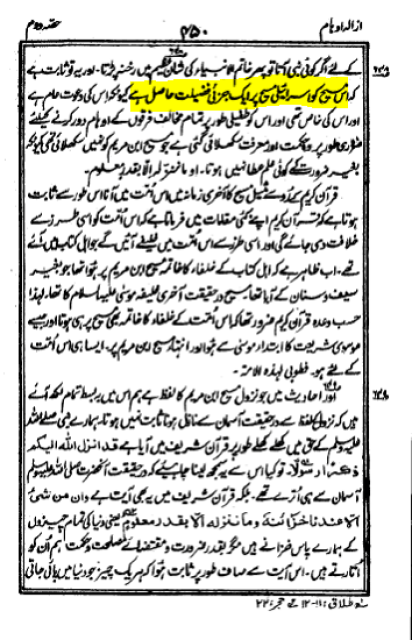 ازالہ اوہام
۴۵۰
حصہ دوم
کے لئے اگر کوئی نبی آتا تو پھر خاتم الانبیاء کی شان عظیم میں رخنہ پڑتا۔ اور یہ تو ثابت ہے
کہ اس مسیح کو اسرائیلی مسیح پر ایک جزئی فضیلت حاصل ہے کیونکہ اس کی دعوت عام ہے
اور اس کی خاص تھی اور اس کو طفیلی طور پر تمام مخالف فرقوں کے اوہام دور کرنے کیلئے
ضروری طور پر وہ حکمت اور معرفت سکھلائی گئی ہے جو مسیح ابن مریم کو نہیں سکھلائی تھی کیونکہ
بغیر ضرورت کے کوئی علم عطا نہیں ہوتا۔ وما ننزله الا بقدر معلوم۔
قرآن کریم کے رو سے مثیل مسیح کا آخری زمانہ میں اس امت میں آنا اس طور سے ثابت
ہوتا ہے کہ قرآن کریم اپنے کئی مقامات میں فرماتا ہے کہ اس امت کو اسی طرز سے
خلافت دی جائے گی اور اسی طرز سے اس امت میں خلیفے آئیں گے جو اہل کتاب میں آئے
تھے۔ اب ظاہر ہے کہ اہل کتاب کے خلفاء کا خاتمہ مسیح ابن مریم پر ہوا تھا جو بغیر
سیف و سنان کے آیا تھا۔ مسیح درحقیقت آخری خلیفہ موسیٰ علیہ السلام کا تھا۔ لہذا
حسب وعدہ قرآن کریم ضرور تھا کہ اس امت کے خلفاء کا خاتمہ بھی مسیح پر ہی ہوتا اور جیسے
موسوی شریعت کا ابتدا موسیٰ سے ہوا اور انتہا مسیح ابن مریم پر۔ ایسا ہی اس امت
کے لئے ہو۔ فطوبی لهذه الامة۔
اور احادیث میں جو نزول مسیح ابن مریم کا لفظ ہے ہم اس میں بربط تمام لکھ آئے
ہیں کہ نزول کے لفظ سے درحقیقت آسمان سے نازل ہونا ثابت نہیں ہوتا، ہمارے نبی صلی اللہ
علیہ وسلم کے حق میں کھلے کھلے طور پر قرآن شریف میں آیا ہے قد انزل الله اليكم
ذكرا رسولا۔ تو کیا اس سے یہ سمجھ لینا چاہیئے کہ درحقیقت آنحضرت صلی اللہ علیہ وسلم
آسمان سے ہی اترے تھے۔ بلکہ قرآن شریف میں یہ بھی آیت ہے وان من شیء
الا عندنا خزائنه وما ننزله الا بقدر معلوم یعنی دنیا کی تمام چیزوں
کے ہمارے پاس خزانے ہیں مگر بقدر ضرورت و مقتضائے مصلحت و حکمت ہم ان کو
اتارتے ہیں۔ اس آیت سے صاف طور پر ثابت ہوا کہ ہر یک چیز جو دنیا میں پائی جاتی